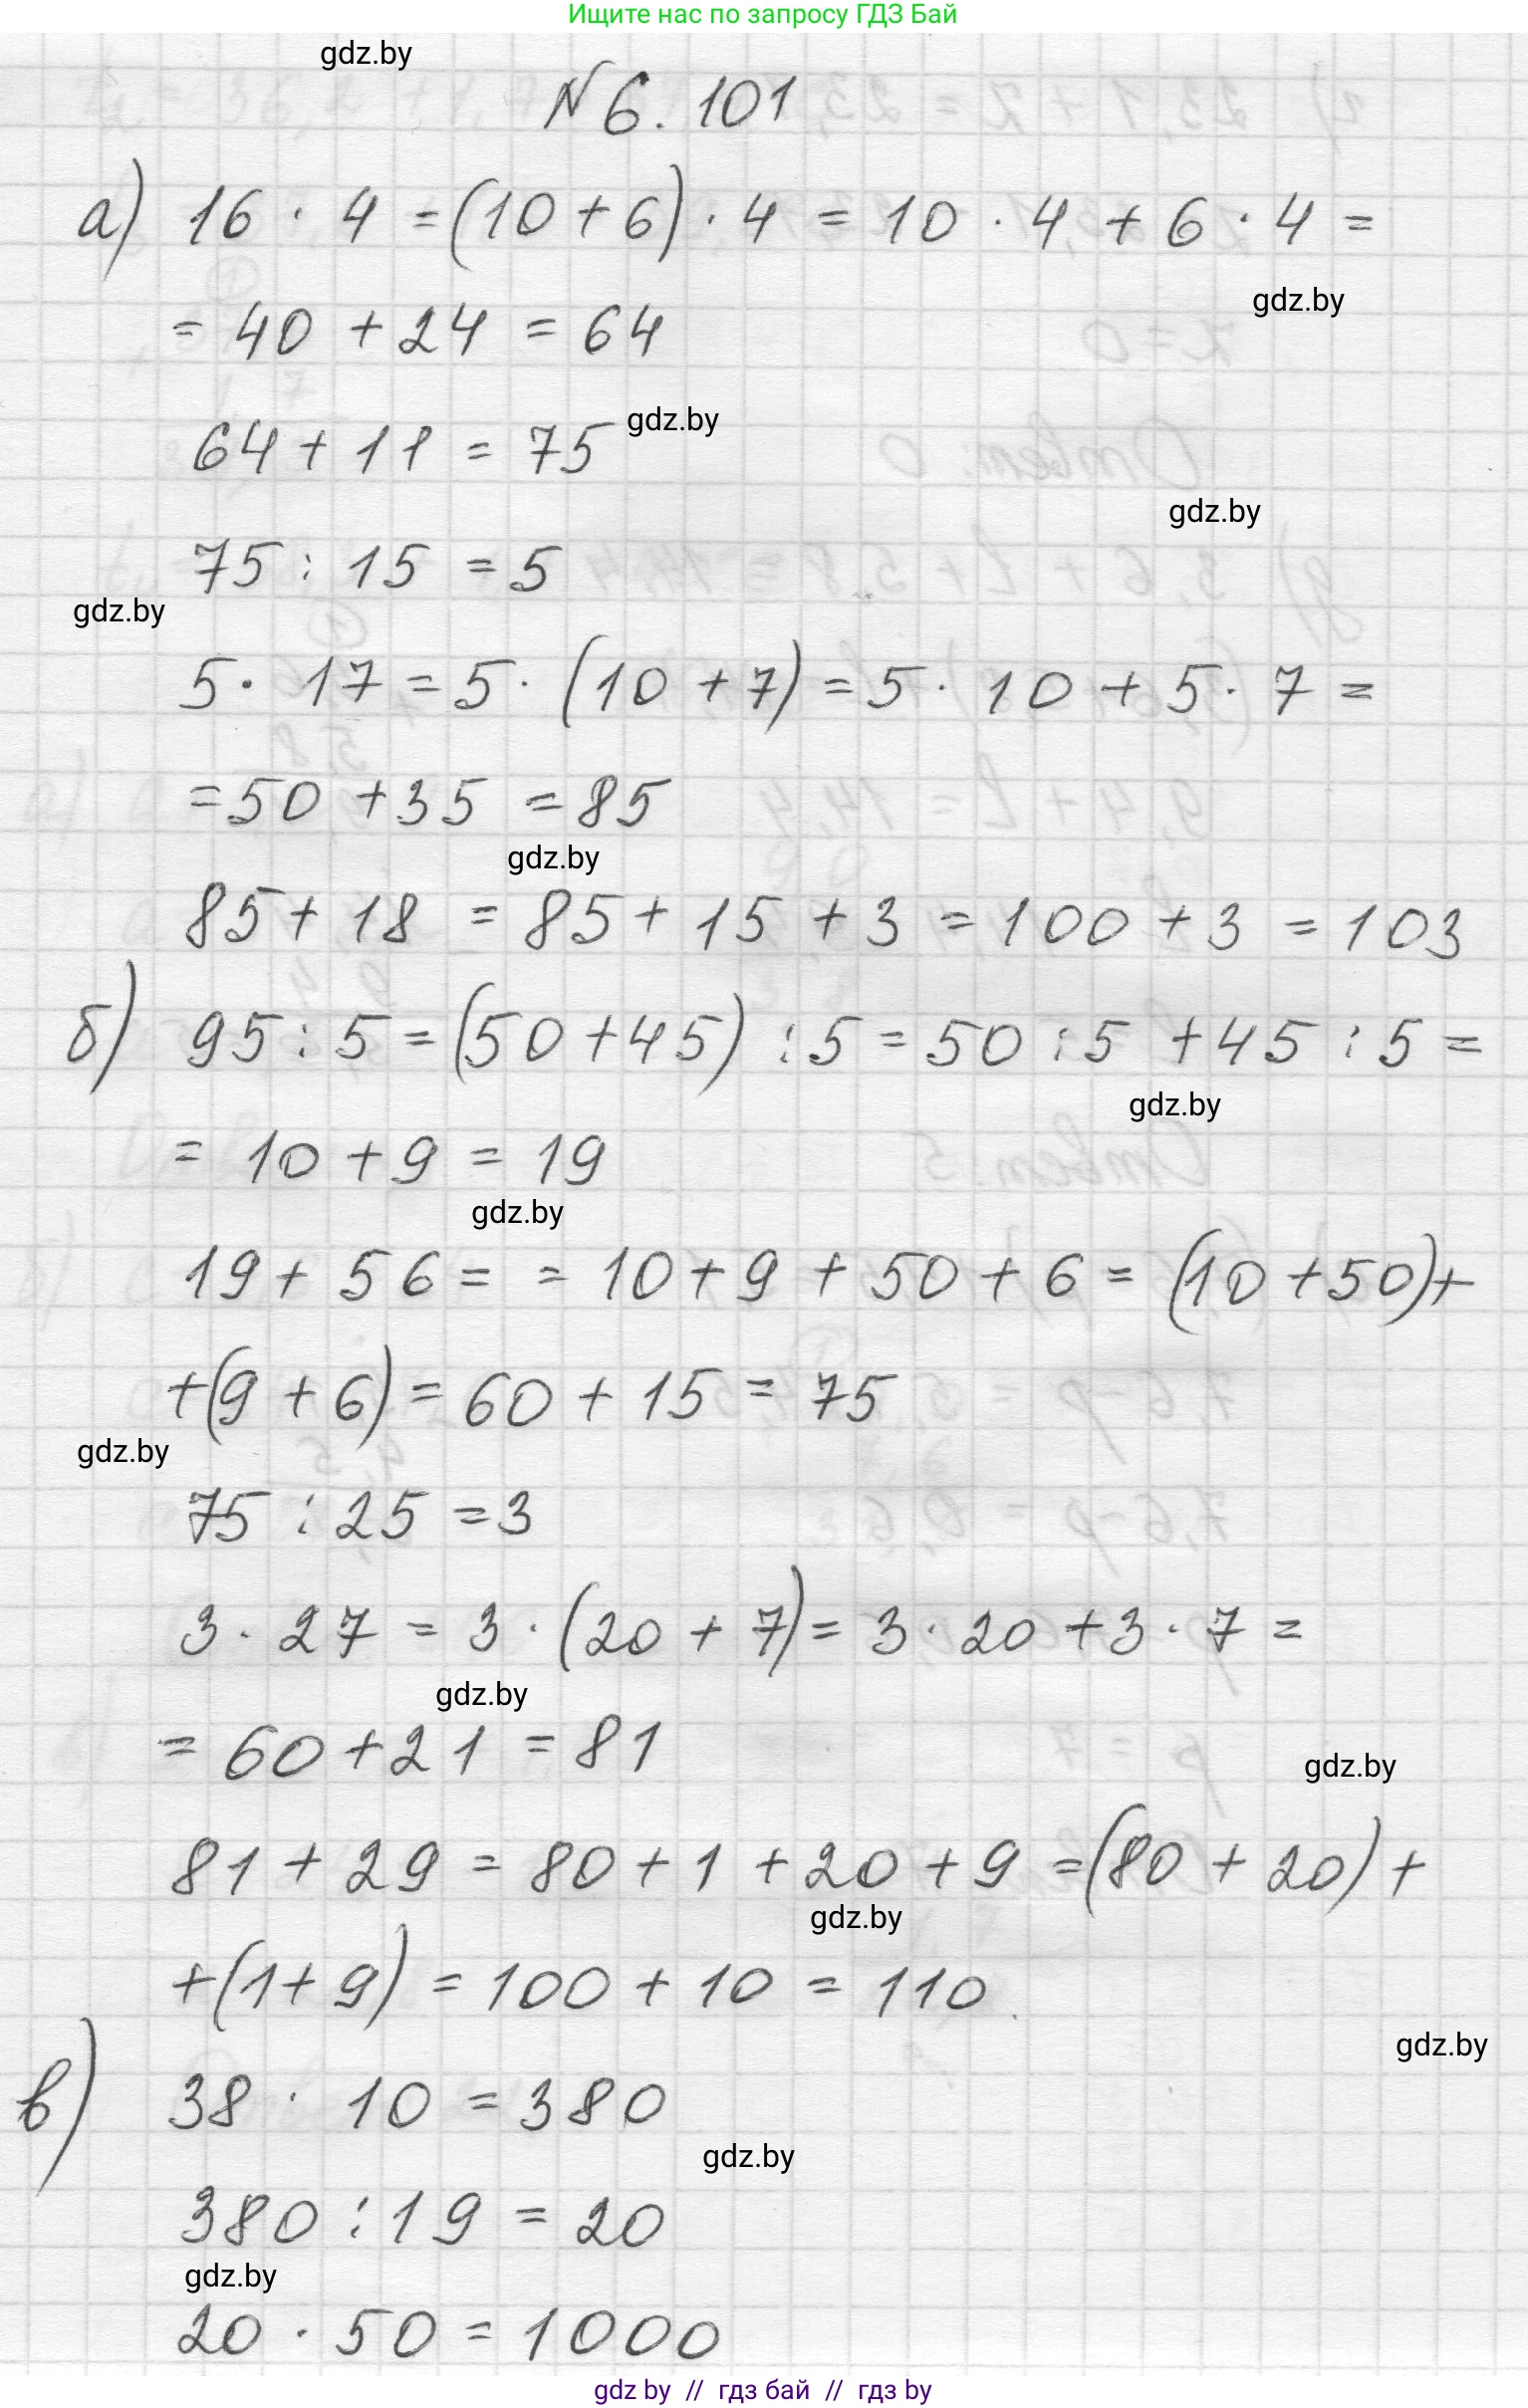 Ищите нас по запросу ГДЗ Бай
gdz.by
№ 6. 101
а) 16 · 4 = (10 + 6) · 4 = 10 · 4 + 6 · 4 =
gdz.by
= 40 + 24 = 64
gdz.by
64 + 11 = 75
gdz.by
75 : 15 = 5
gdz.by
5 · 17 = 5 · (10 + 7) = 5 · 10 + 5 · 7 =
= 50 + 35 = 85
gdz.by
85 + 18 = 85 + 15 + 3 = 100 + 3 = 103
б) 95 : 5 = (50 + 45) : 5 = 50 : 5 + 45 : 5 =
gdz.by
= 10 + 9 = 19
gdz.by
19 + 56 = = 10 + 9 + 50 + 6 = (10 + 50) +
+ (9 + 6) = 60 + 15 = 75
gdz.by
75 : 25 = 3
3 · 27 = 3 · (20 + 7) = 3 · 20 + 3 · 7 =
gdz.by
= 60 + 21 = 81
gdz.by
81 + 29 = 80 + 1 + 20 + 9 = (80 + 20) +
gdz.by
+ (1 + 9) = 100 + 10 = 110.
gdz.by
в) 38 · 10 = 380
gdz.by
380 : 19 = 20
gdz.by
20 · 50 = 1000
gdz by // гдз бай // гдз by